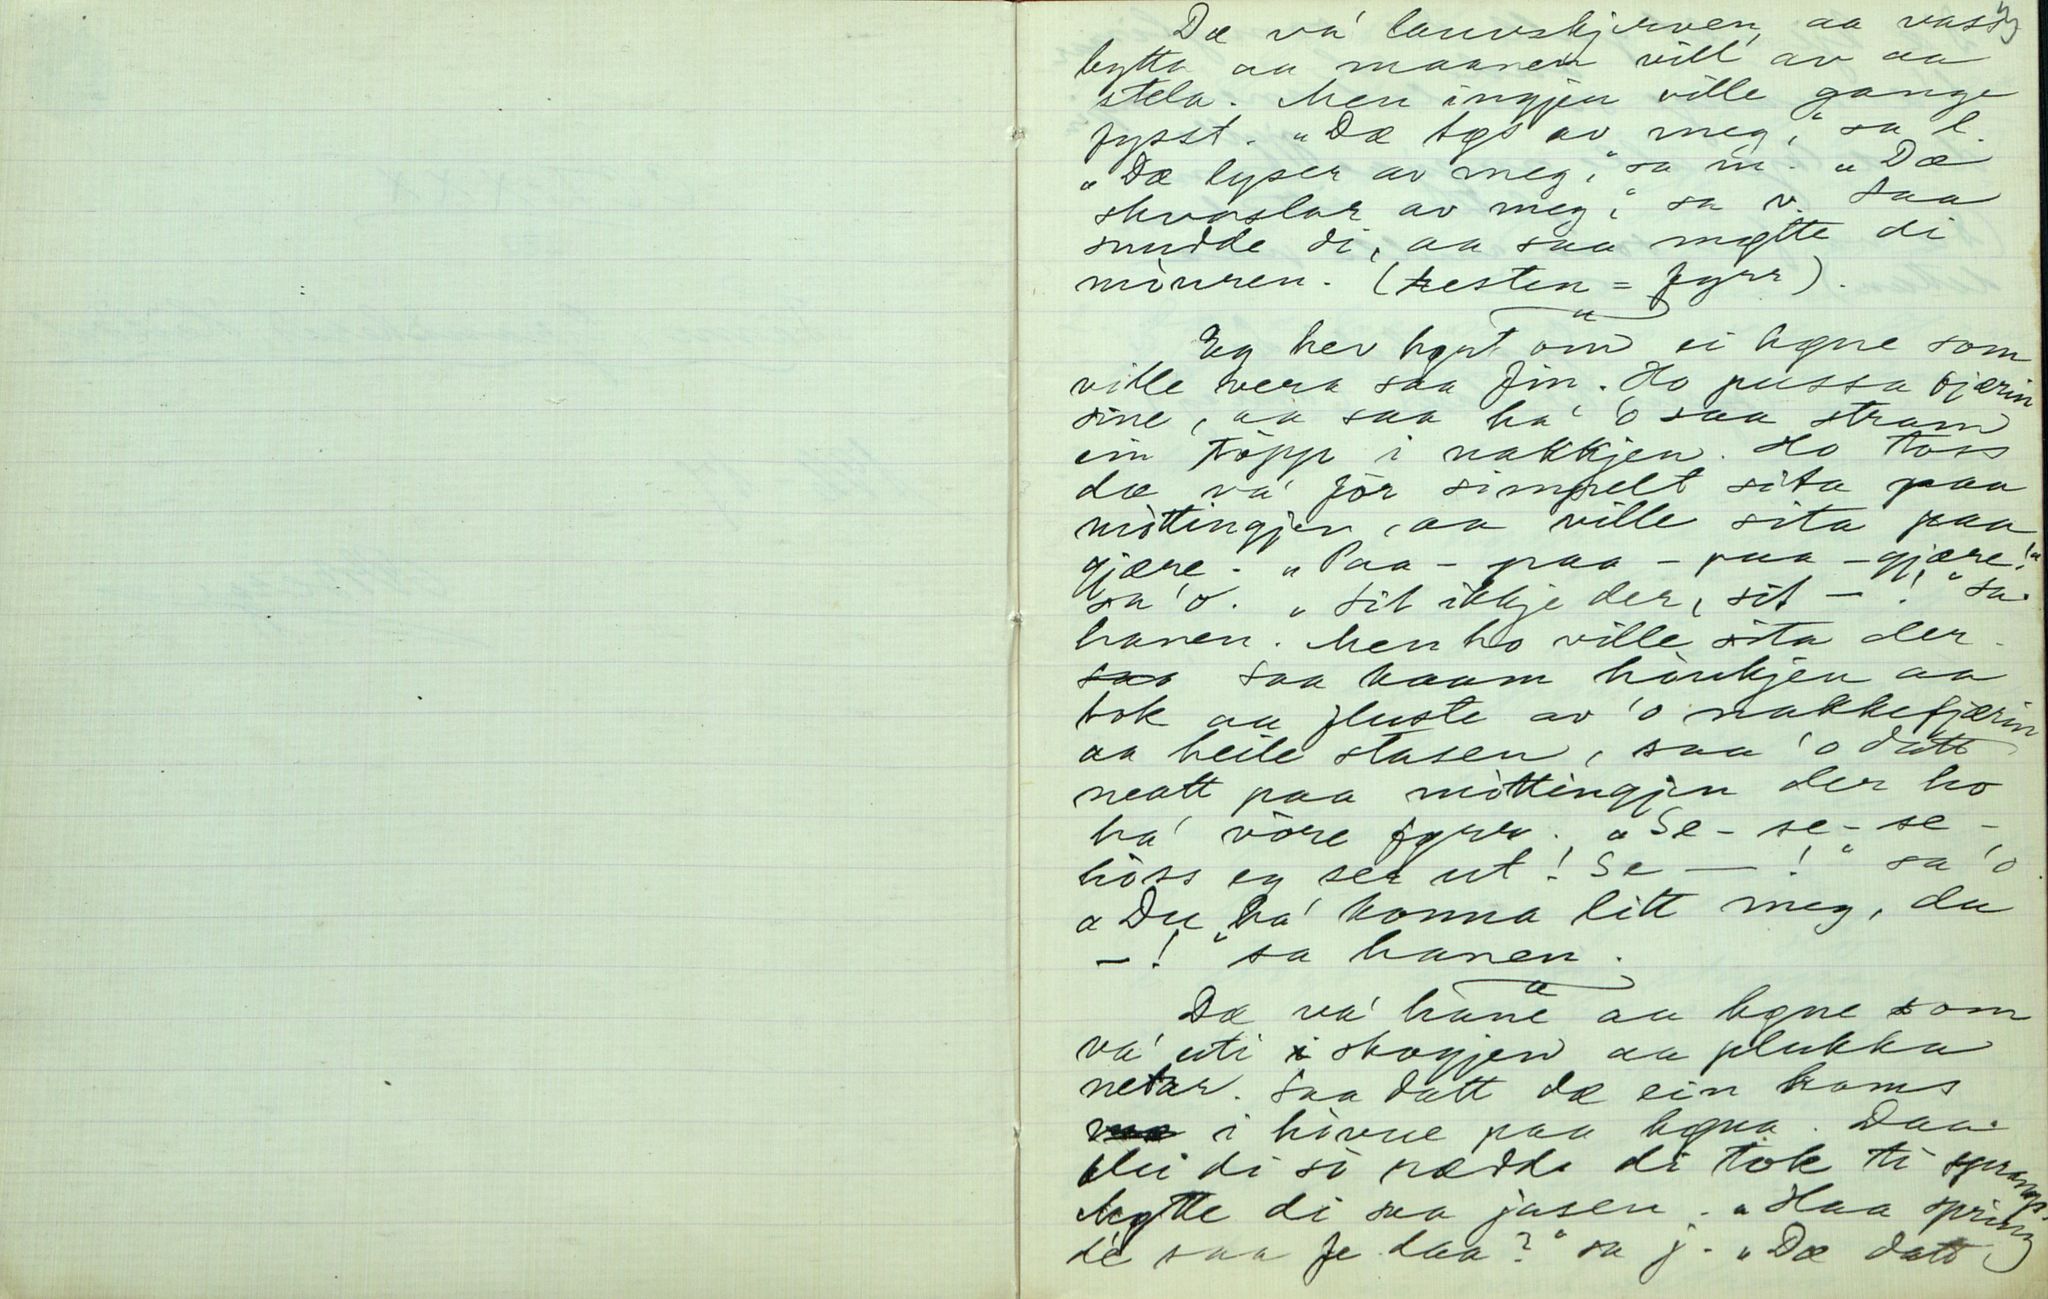 Dæ va' lauvskjerven, aa vass-
bytta aa maanen vill av aa
stela. Men ingjen ville gange
fysst. "Dæ tøs av meg," sa l.
"Dæ lyser av meg," sa m. "Dæ
skvaslar av meg," sa v. Saa
snudde di, aa saa møtte di
mòuren. (resten = fyrr).
Eg hev høyrt om ei høne som
ville vera saa fin. Ho pussa fjærin
sine, aa saa ha' 'o saa stram
ein tòpp i nakkjen. Ho toss
dæ va' fòr simpelt sita paa
mòttingjen, aa ville sita paa
gjære. "Paa - paa - paa - gjære!"
sa 'o. "Sit ikkje der, sit — !" sa
hanen. Men ho ville sita der.
Saa kaam hòukjen aa
tok aa fluste av 'o nakkefjærin
aa heile stasen, saa 'o datt
neatt paa mòttingjen der ho
ha' vòre fyrr. "Se - se - se -
hòss eg ser ut! Se — !" sa 'o.
"Du ha' konna litt meg, du
— !" sa hanen.
Dæ va' hane aa høne som
va' uti skogjen aa plukka
netar. Saa datt dæ ein kams
i hòvue paa høna. Daa
blei di sò rædde di tok ti sprangs.
Møtte di saa jasen. "Haa spring
de saa fe daa?" sa j. "Dæ datt